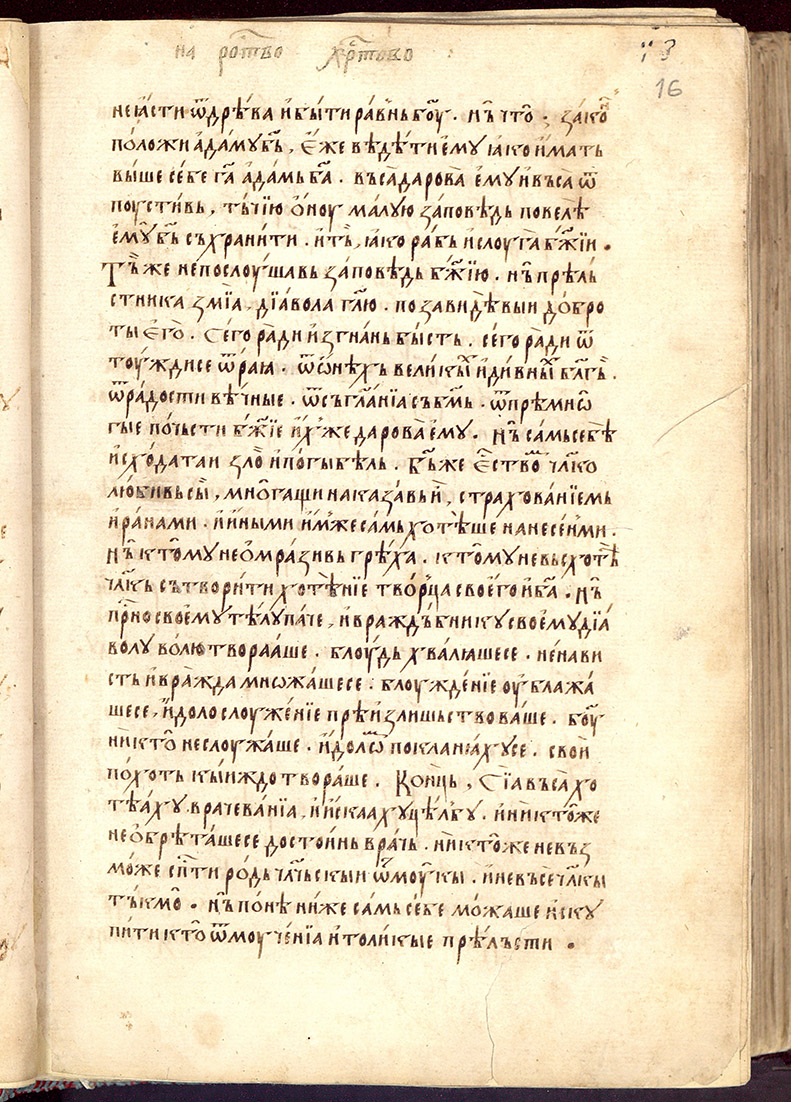 на рⷪ҇тво хрⷭ҇тово
16
не ꙗ҆́сти ѿ дрѣ́ва и҆ бы́ти ра́внь бо҃у . нь̀ что̀ . зако́нь
по́ложи а҆да́му бь҃ , є҆́же вѣ́дѣти є҆му̀ ꙗ҆ко и҆́мать
вы́ше се́бе га҃ а҆да́мь ба҃ . въса̀ дарова̀ є҆му̀ и҆ въса̀ ѿ
поусти́вь , тъ́чїю ѻ҆́ноу ма́лую за́повѣдь повелѣ̀
є҆му̀ бь҃ съхрани́ти . и҆ тъ̀ , ꙗ҆ко ра́бь и҆ слоуга̀ бж҃їи .
Тъ́же непослоу́шавь за́повѣдь бж҃їю . нь̀ прѣ́ль
стника змі́а , дїа́вола гл҃ю . позави́дѣвыи до́бро
ты є҆го̀ . Сего̀ ра́ди и҆згна́нь бы́сть . се́го ра́ди ѿ
тоу́ждисе ѿ ра́ꙗ . ѿ ѡ҆нѣ́хь вели́кыⷯ и҆ ди́вныⷯ бл҃гь .
ѿ ра́дости вѣ́чные . ѿ съгл҃анїа съ бм҃ь . ѿ прѣмнѡ
гые по́чьсти бж҃їе и҆́хже дарова̀ є҆му . нь̀ са́мь себѣ̀
и҆схо́датаи зло̀ и҆ по́гыбѣль . бь҃ же є҆ствоⷨ чл҃ко
лю́бивь сы́ , мно́гащи наказа́вь и҆̀ , страхова́нїемь
и҆ ра́нами . и҆ и҆́ными и҆́мже са́мь хотѣ́ше нанесе́ими .
нь̀ к томѹ неѻ҆мра́зивь грѣ́ха . к тому невьсхотѣ̀
чл҃кь сътвори́ти хотѣ́нїе тво́рца своего̀ и҆ ба҃ . нь̀
при́но своему̀ тѣ́лу па́че , и҆ вражъбнику своему̀ дїа́
волу во́лю твора́аше . блоу́дь хва́лꙗшесе . не́нави
сть и҆ вра́жда мнѡжа́шесе . блоужде́нїе оу҆блажа́
шесе , и҆́долослоуже́нїе прѣи҆зли́шьствова́ше . бо҃у
ни́кто̀ неслоужа́ше . и҆́дол̾ѡⷨ покланꙗ́хусе . свои
по́хоть кы́иждо твора́ше . Коне́ць , Сїа̀ въса̀ хо
тѣ́аху врачева́нїа , и҆ и҆скаа́ху цѣ́лбу . и҆ ни́кто̀же
не ѻ҆брѣта́шесе досто́инь вра́чь . ни́кто̀же невъз
мо́же сп҃сти ро́дь чл҃чьскыи ѿ моукы . и҆ не въсе чл҃кы
тъ́кмо . нь̀ по́нѣ ни́же са́мь се́бе мо́жаше и҆ску
пи́ти кто̀ ѿ моуче́нїа и҆ толи́кые прѣ́льсти .